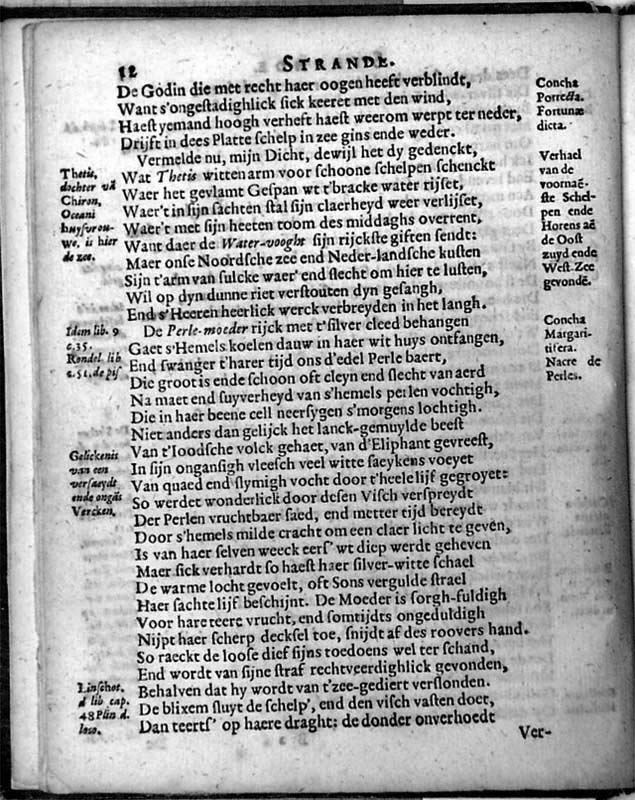 12
STRANDE.
De Godin die met recht haer oogen heeft verblindt,
Want s'ongestadighlick sick keeret met den wind,
Haest yemand hoogh verheft haest weerom werpt ter neder,
Drijft in dees Platte schelp in zee gins ende weder.
Concha
Porrecta.
Fortunæ
dicta.
Vermelde nu, mijn Dicht, dewijl het dy gedenckt,
Wat Thetis witten arm voor schoone schelpen schenckt
Waer het gevlamt Gespan wt t'bracke water rijset,
Waer't in sijn sachten stal sijn claerheyd weer verlijset,
Waer't met sijn heeten toom des middaghs overrent,
Want daer de Water-vooght sijn rijckste giften sendt:
Maer onse Noordsche zee end Neder-landsche kusten
Sijn t'arm van sulcke waer' end slecht om hier te lusten,
Wil op dyn dunne riet verstouten dyn gesangh,
End s'Heeren heerlick werck verbreyden in het langh.
Thetis,
dochter vā
Chiron,
Oceani
huysvrou-
we, is hier
de zee.
Verhael
van de
voornaē-
ste Schel-
pen ende
Horens aē
de Oost
zuyd ende
West-Zee
gevondē.
De Perle-moeder rijck met t'silver cleed behangen
Gaet s'Hemels koelen dauw in haer wit huys ontfangen,
End swanger t'harer tijd ons d'edel Perle baert,
Die groot is ende schoon oft cleyn end slecht van aerd
Na maet end suyverheyd van s'hemels perlen vochtigh,
Die in haer beene cell neersygen s'morgens lochtigh.
Idem lib. 9
c. 35.
Rondel. lib
c. 51. de pis
Concha
Margari-
tifera.
Nacre de
Perles.
Niet anders dan gelijck het lanck-gemuylde beest
Van t'Ioodsche volck gehaet, van d'Eliphant gevreest,
In sijn ongansigh vleesch veel witte saeykens voeyet
Van quaed end slymigh vocht door t'heele lijf gegroyet:
So werdet wonderlick door desen Visch verspreydt
Der Perlen vruchtbaer saed, end metter tijd bereydt
Door s'hemels milde cracht om een claer licht te geven,
Is van haer selven weeck eers' wt diep werdt geheven
Maer sick verhardt so haest haer silver-witte schael
De warme locht gevoelt, oft Sons vergulde strael
Haer sachte lijf beschijnt. De Moeder is sorgh-fuldigh
Voor hare teere vrucht, end somtijdts ongeduldigh
Nijpt haer scherp decksel toe, snijdt af des roovers hand.
So raeckt de loose dief sijns toedoens wel ter schand,
End wordt van sijne straf rechtveerdighlick gevonden,
Behalven dat hy wordt van t'zee-gediert verslonden.
De blixem sluyt de schelp', end den visch vasten doet,
Dan teerts' op haere draght: de donder onverhoedt
Gelickenis
van een
versaeydt
ende ongās
Vercken.
Linschot.
d lib cap.
48 Plin d.
loco.
Ver-